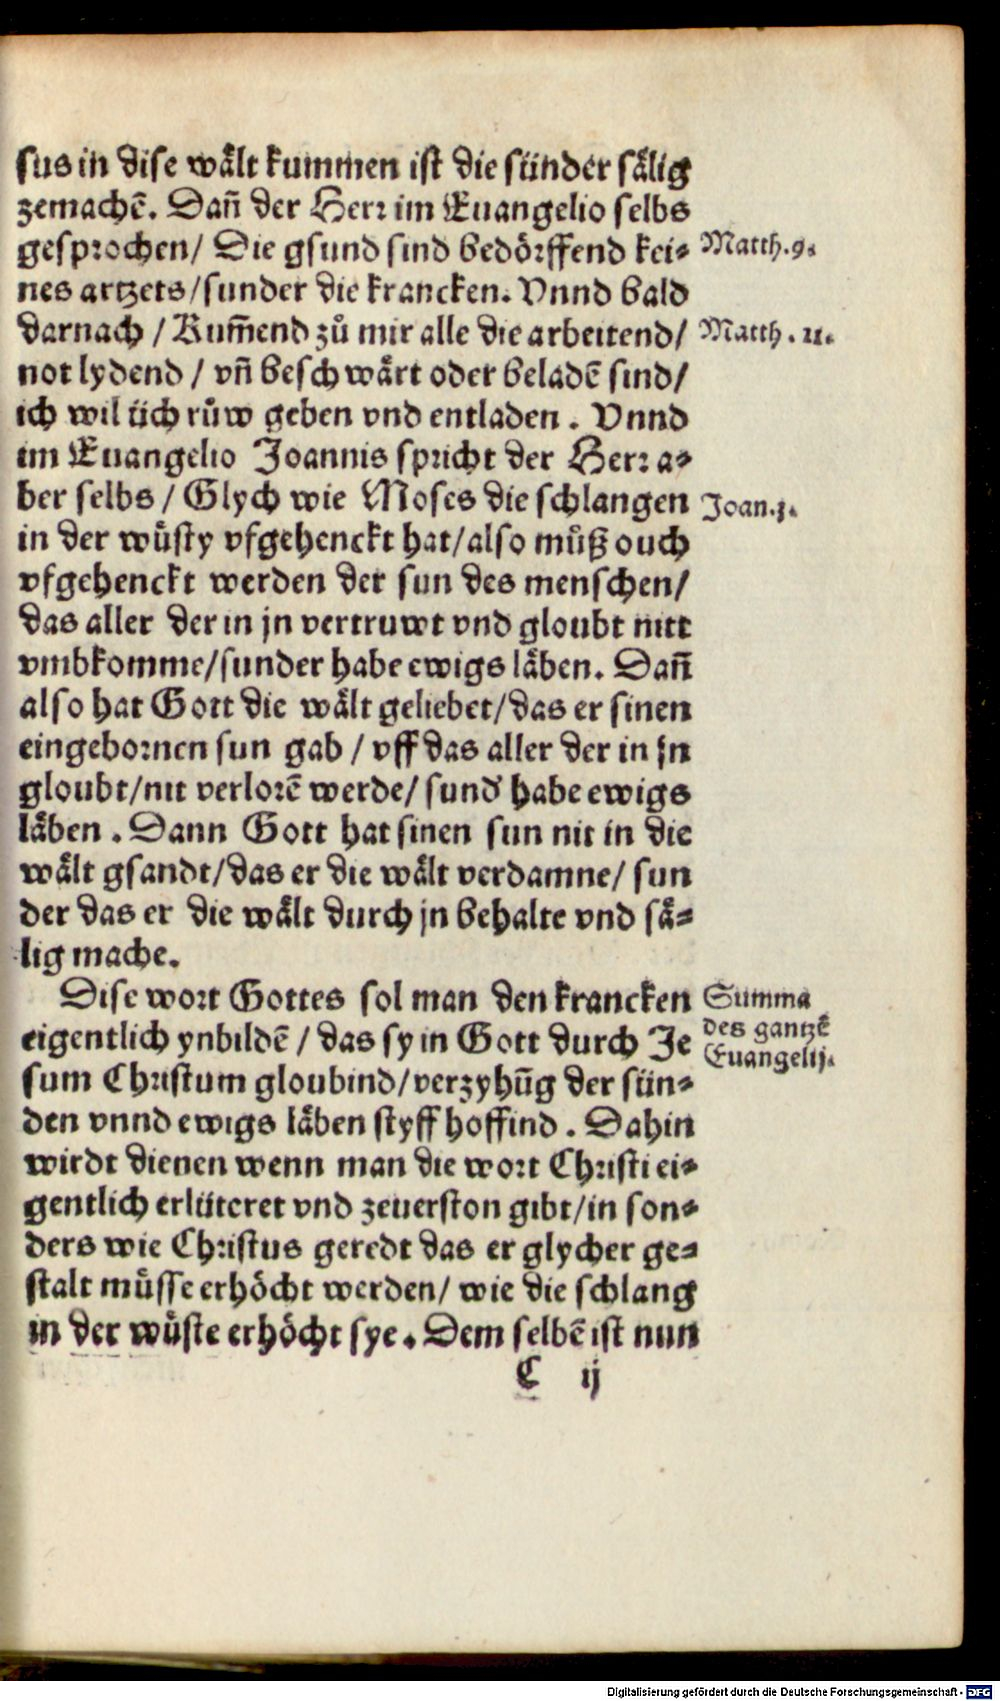 sus in dise waͤlt kummen ist die sünder saͤlig
zemachē. Dañ der Herr im Euangelio selbs
gesprochen/ Die gsund sind bedoͤrffend kei-
Matth.9.
nes artzets/sunder die krancken. Vnnd bald
darnach / Kum̄end zuͦ mir alle die arbeitend/
Matth. 11.
not lydend / vñ beschwaͤrt oder beladē sind/
ich wil üch ruͦw geben vnd entladen. Vnnd
im Euangelio Joannis spricht der Herr a-
ber selbs / Glych wie Moses die schlangen
Joan.3.
in der wuͤsty vfgehenckt hat/also muͤß ouch
vfgehenckt werden der sun des menschen/
das aller der in jn vertruwt vnd gloubt nitt
vmbkomme/sunder habe ewigs laͤben. Dañ
also hat Gott die waͤlt geliebet/das er sinen
eingebornen sun gab / vff das aller der in jn
gloubt/nit verlorē werde/ sund' habe ewigs
laͤben. Dann Gott hat sinen sun nit in die
waͤlt gsandt/das er die waͤlt verdamne/ sun
der das er die waͤlt durch jn behalte vnd saͤ-
lig mache.
Dise wort Gottes sol man den krancken
Summa
des gantzē
Euangelij.
eigentlich ynbildē / das sy in Gott durch Je
sum Christum gloubind/verzyhūg der sün-
den vnnd ewigs laͤben styff hoffind. Dahin
wirdt dienen wenn man die wort Christi ei-
gentlich erlüteret vnd zeuerston gibt/in son-
ders wie Christus geredt das er glycher ge-
stalt muͤsse erhoͤcht werden/ wie die schlang
in der wuͤste erhoͤcht sye. Dem selbē ist nun
C ij
Digitalisierung gefördert durch die Deutsche Forschungsgemeinschaft - DFG